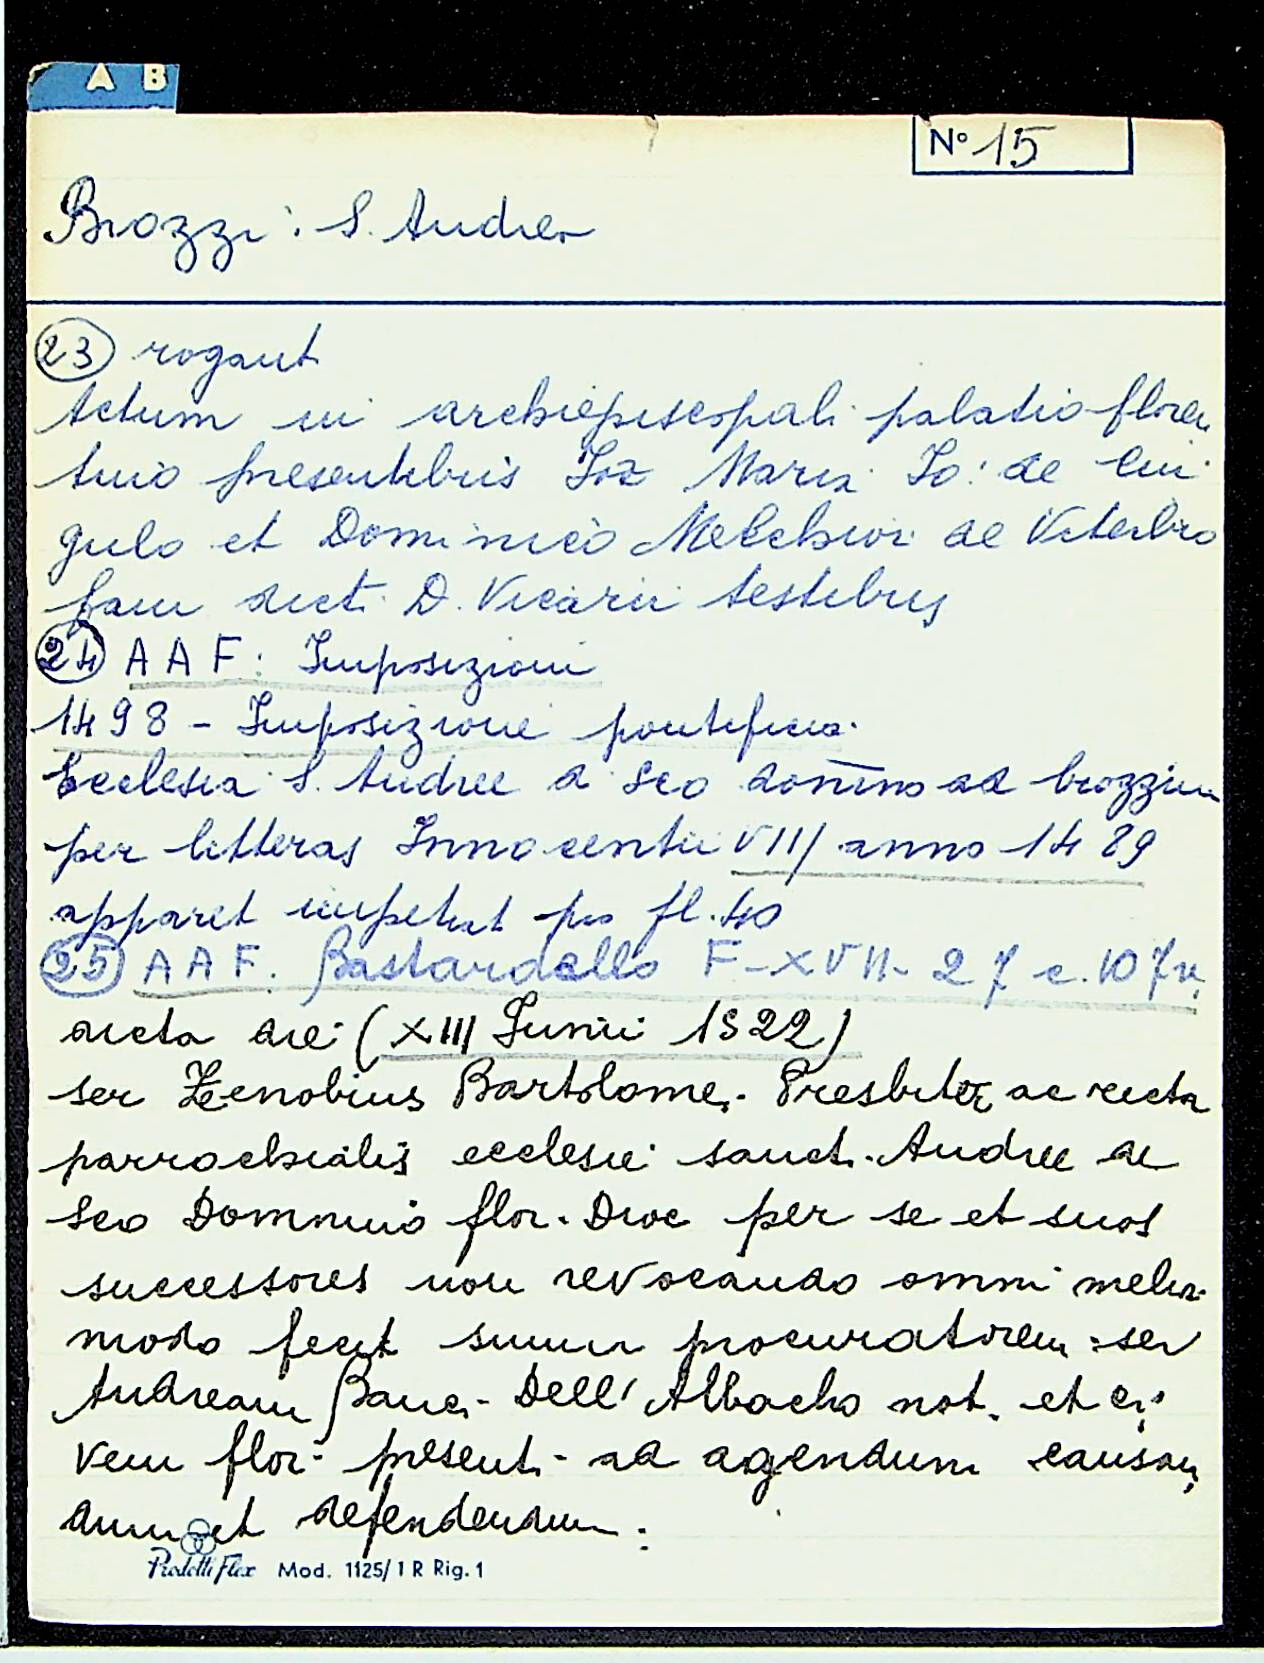 A B
N° 15
Brozzi: S. Andrea
23 rogant
Actum in archiepiscopali palatio floren
tino presentibus Maria Jo: de Cin
gulo et Dominico Melchior de Viterbio
fam dicti D. Vicarii testibus
24 AAF: Imposizioni
1498 - Imposizione pontificia.
Ecclesia S. Andree a Sco domino ad brozzium
per litteras Innocentii VIII anno 1489
apparet impetrat pro fl. 40
25 AAF. Bastardello F-XVII-27 c. 107v.
dicta die (XIII Junii 1522)
ser Zenobius Bartolome. Presbiter ac recto
parrochialis ecclesie sanct. Andree de
Sco Dommino flor. Dioc per se et suos
successores non revocando omni melior
modo fecit suum procuratorem ser
Andream Banci. Dell' Albacho not. et ci,
vem flor. present. ad agendum causan,
dum et defendendum.
Prodotti Flex Mod. 1125/1 R Rig. 1